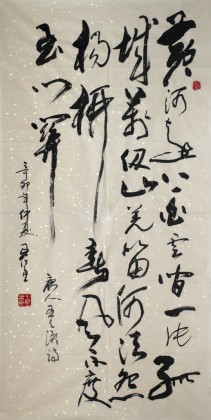 黄河远上白云間一片孤
城萬仞山羌笛何须怨
楊柳春风不度
玉门関
唐人王之涣詩
辛卯年仲夏